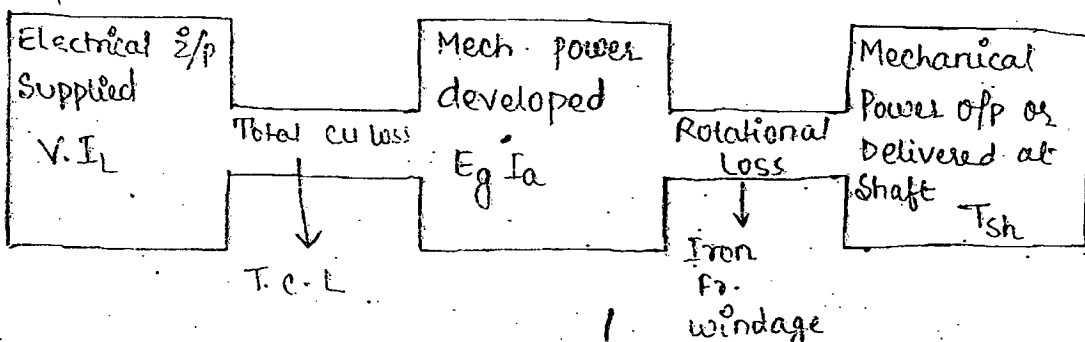 Electrical i/p
Supplied
V.I_L
Total cu loss
T.C.L
Mech. power
developed
Eg Ia
Rotational
Loss
Iron
Fr.
windage
Mechanical
Power o/p or
Delivered at
Shaft
T_sh